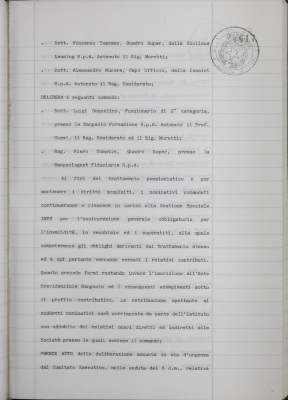 . Dott. Vincenzo Toscano, Quadro Super, dalla Siciliana
Leasing S.p.A. Astenuto il Sig. Moretti;
. Dott. Alessandro Murora, Capo Ufficio, dalla
S.p.A. Astenuto il Rag. Desiderato;
DELIBERA i seguenti comandi:
. Dott. Luigi Funzionario di 2° categoria,
presso la Sanpaolo Formazione S.p.A. Astenuti il Prof.
il Rag. Desiderato ed il Sig. Moretti;
. Rag. Piero Tomatis, Quadro Super, presso la
Fiduciaria S.p.A.
Ai fini del trattamento pensionistico e per
mantenere i diritti acquisiti, i nominativi comandati
continueranno a rimanere in carico alla Gestione Speciale
INPS per l'assicurazione generale obbligatoria per
l'invalidità, la vecchiaia ed i superstiti, alla quale
competeranno gli obblighi derivanti dal trattamento stesso
ed a cui pertanto verranno versati i relativi contributi.
Quanto precede fermi restando invece l'iscrizione all'Ente
Previdenziale Sanpaolo ed i conseguenti adempimenti sotto
il profilo contributivo. La retribuzione spettante ai
suddetti nominativi sarà corrisposta da parte dell'Istituto
con addebito dei relativi oneri diretti ed indiretti alle
Società presso le quali avviene il comando;
PRENDE ATTO della deliberazione assunta in via d'urgenza
dal Comitato Esecutivo, nella seduta del 5 c.m., relativa